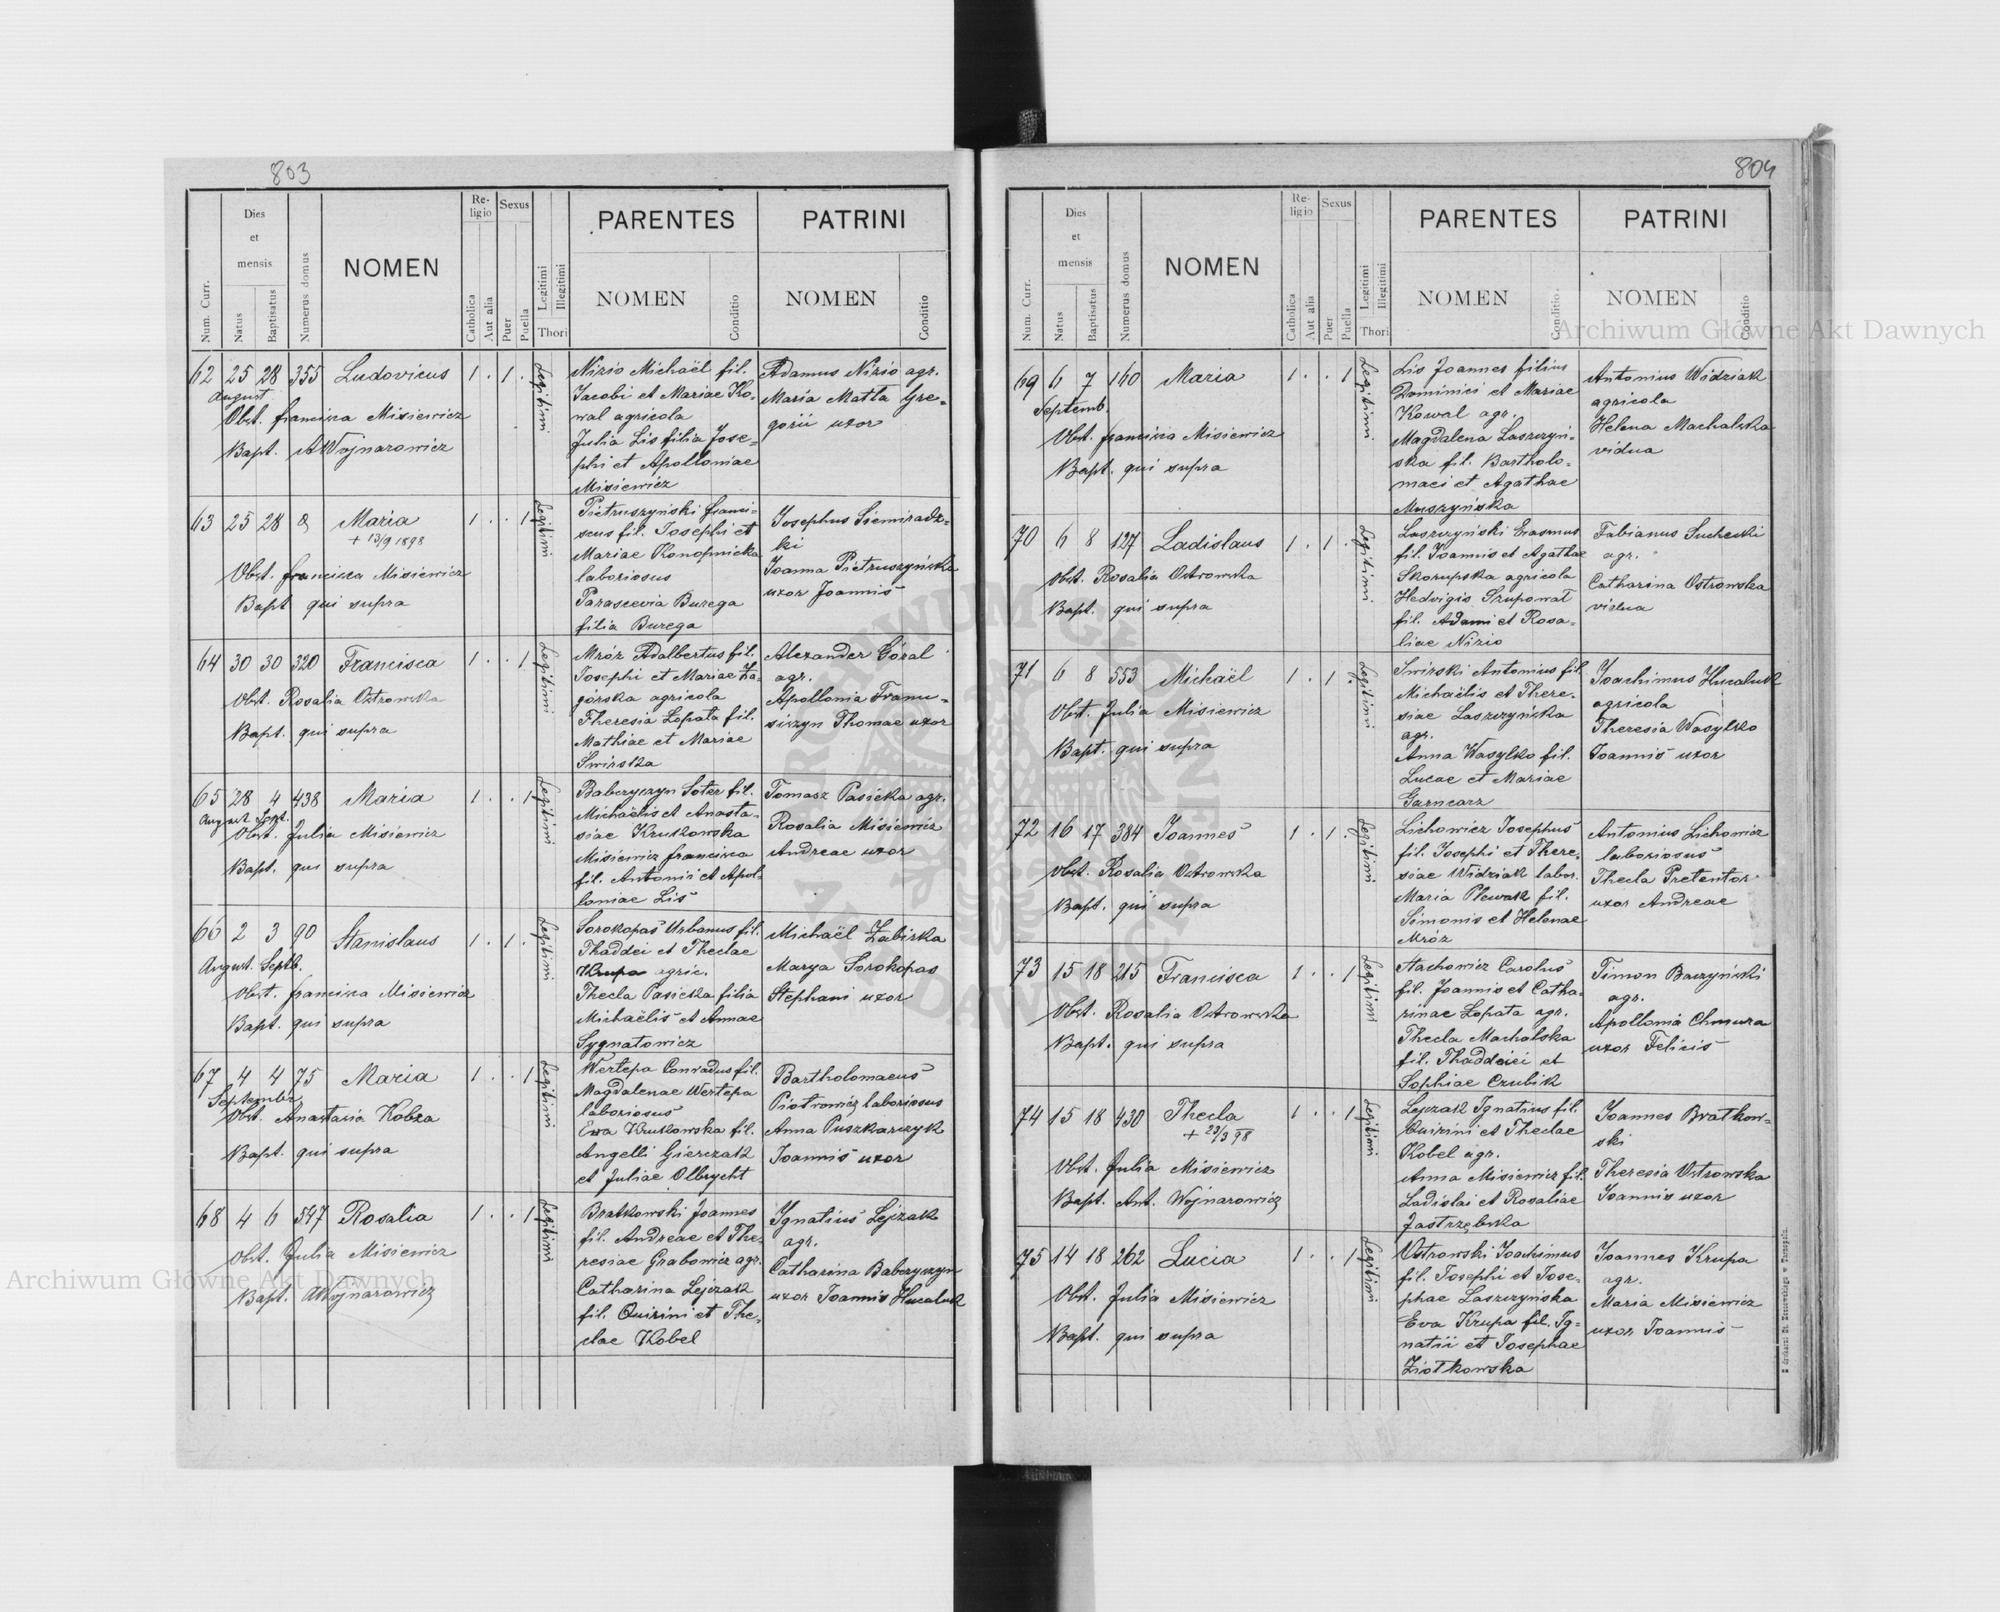 803
Num. Curr.
Dies
et
mensis
Natus
Baptisatus
Numerus domus
NOMEN
Re-
ligio
Catholica
Aut alia
Sexus
Puer
Puella
Legitimi
Illegitimi
Thori
PARENTES
NOMEN
Conditio
PATRINI
NOMEN
Conditio
62 25 28 355 Ludovicus 1 . 1 .
August
Obst. Francisca Misiewicz
Bapt. AWojnarowicz
Legitimi
Nizio Michaël fil.
Jacobi et Mariae Ko-
wal agricola
Julia Lis filia Jose-
phi et Apolloniae
Misiewicz
Adamus Nizio agr.
Maria Matła Gre-
gorii uxor
63 25 28 8 Maria 1 . . 1
+ 13/9 1898
Obst. Francisca Misiewicz
Bapt qui supra
Legitimi
Pietruszyński Franci-
scus fil. Josephi et
Mariae Konopnicka
laboriosus
Parascevia Burega
filia Burega
Josephus Siemiradz-
ki
Joanna Pietruszyńska
uxor Joannis
64 30 30 320 Francisca 1 . . 1
Obst. Rosalia Ostrowska
Bapt. qui supra
Legitimi
Mróz Adalbertus fil.
Josephi et Mariae Za-
górska agricola
Theresia Łopata fil.
Mathiae et Mariae
Swirska
Alexander Góral
agr.
Apollonia Franu-
siczyn Thomae uxor
65 28 4 438 Maria 1 . . 1
August Sept.
Obst. Julia Misiewicz
Bapt. qui supra
Legitimi
Babczyczyn Soter fil.
Michaëlis et Anasta-
siae Kruszkowska
Misiewicz Francisca
fil. Antonii et Apol-
loniae Lis
Tomasz Pasieka agr.
Rosalia Misiewicz
Andreae uxor
66 2 3 90 Stanislaus 1 . 1 .
August. Septb.
Obst. Francisca Misiewicz
Bapt. qui supra
Legitimi
Sorokopas Urbanus fil.
Thaddei et Theclae
Krupa agric.
Thecla Pasieka filia
Michaëlis et Annae
Sygnatowicz
Michaël Żabiska
Marya Sorokopas
Stephani uxor
67 4 4 75 Maria 1 . . 1
September
Obst. Anastasia Kobza
Bapt. qui supra
Legitimi
Wertepa Conradus fil.
Magdalenae Wertepa
laboriosus
Ewa Krutkowska fil.
Angelli Gierczak
et Juliae Olbrycht
Bartholomaeus
Piotrowicz laboriosus
Anna Puszkarczyk
Joannis uxor
68 4 6 547 Rosalia 1 . . 1
Obst. Julia Misiewicz
Bapt. AWojnarowicz
Legitimi
Bratkowski Joannes
fil. Andreae et The-
resiae Grabowicz agr.
Catharina Lejzak
fil. Quirini et The-
clae Kobel
Ignatius Lejzak
agr.
Catharina Babczyczyn
uxor Joannis Hucaluk
804
Num. Curr.
Dies
et
mensis
Natus
Baptisatus
Numerus domus
NOMEN
Re-
ligio
Catholica
Aut alia
Sexus
Puer
Puella
Legitimi
Illegitimi
Thori
PARENTES
NOMEN
Conditio
PATRINI
NOMEN
Conditio
69 6 7 160 Maria 1 . . 1
Septemb.
Obst. Francisca Misiewicz
Bapt. qui supra
Legitimi
Lis Joannes filius
Dominici et Mariae
Kowal agr.
Magdalena Laszczyń-
ska fil. Bartholo-
maei et Agathae
Muszyńska
Antonius Widziak
agricola
Helena Machalska
vidua
70 6 8 127 Ladislaus 1 . 1 .
Obst. Rosalia Ostrowska
Bapt. qui supra
Legitimi
Laszczyński Erasmus
fil. Joannis et Agathae
Skorupska agricola
Hedvigis Szupował
fil. Adami et Rosa-
liae Nizio
Fabianus Suchecki
agr.
Catharina Ostrowska
vidua
71 6 8 553 Michaël 1 . 1 .
Obst. Julia Misiewicz
Bapt. qui supra
Legitimi
Swirski Antonius fil.
Michaëlis et There-
siae Laszczyńska
agr.
Anna Wasylko fil.
Lucae et Mariae
Garncarz
Joachimus Hucaluk
agricola
Theresia Wasylko
Joannis uxor
72 16 17 384 Joannes 1 . 1 .
Obst. Rosalia Ostrowska
Bapt. qui supra
Legitimi
Lichowicz Josephus
fil. Josephi et There-
siae Widziak labor.
Maria Plewak fil.
Simonis et Helenae
Mróz
Antonius Lichowicz
laboriosus
Thecla Pretentor
uxor Andreae
73 15 18 215 Francisca 1 . . 1
Obst. Rosalia Ostrowska
Bapt. qui supra
Legitimi
Stachowicz Carolus
fil. Joannis et Catha-
rinae Łopata agr.
Thecla Machalska
fil. Thaddeiei et
Sophiae Czubik
Timon Baczyński
agr.
Apollonia Chmura
uxor Felicis
74 15 18 430 Thecla 1 . . 1
+ 23/3 98
Obst. Julia Misiewicz
Bapt. Ant. Wojnarowicz
Legitimi
Lejzak Ignatius fil.
Quirini et Theclae
Kobel agr.
Anna Misiewicz fil.
Ladislai et Rosaliae
Jastrzębska
Joannes Bratkow-
ski
Theresia Ostrowska
Joannis uxor
75 14 18 262 Lucia 1 . . 1
Obst. Julia Misiewicz
Bapt. qui supra
Legitimi
Ostrowski Joachimus
fil. Josephi et Jose-
phae Laszczyńska
Eva Krupa fil. Ig-
natii et Josephae
Ziółkowska
Joannes Krupa
agr.
Maria Misiewicz
uxor Joannis
Archiwum Główne Akt Dawnych
Archiwum Główne Akt Dawnych
ARCHIWUM GŁÓWNE AKT DAWNYCH